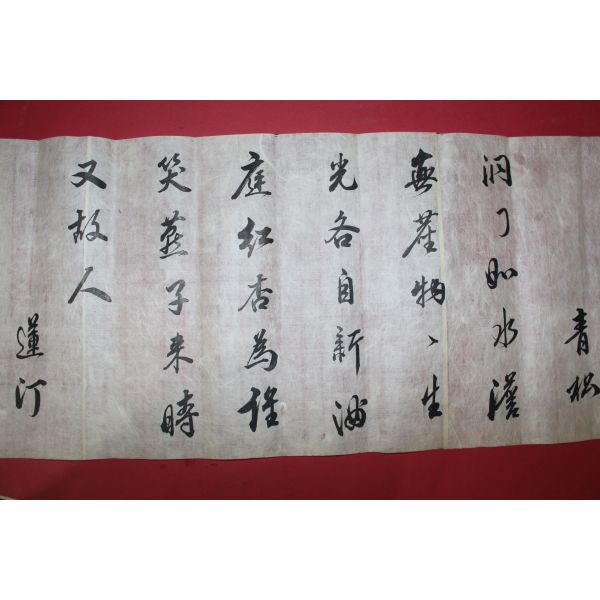 青松
洞門如水澹
無塵物〻生
光各自新滿
庭紅杏為誰
笑燕子来時
又故人
蓮汀